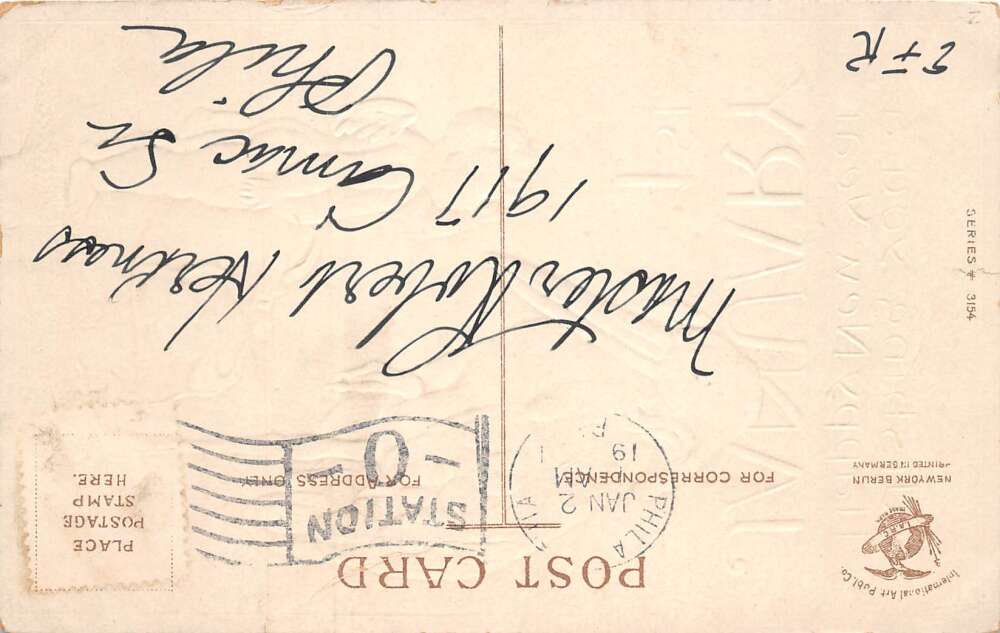 POST CARD
International Art Publ. Co.
NEW YORK BERLIN
PRINTED IN GERMANY
FOR CORRESPONDENCE
FOR ADDRESS ONLY
PLACE
POSTAGE
STAMP
HERE.
PHILA
JAN 2
AM
19
STATION
-O-
SERIES # 3154
Master Robert
1917 Camac St
Phila
JANUARY